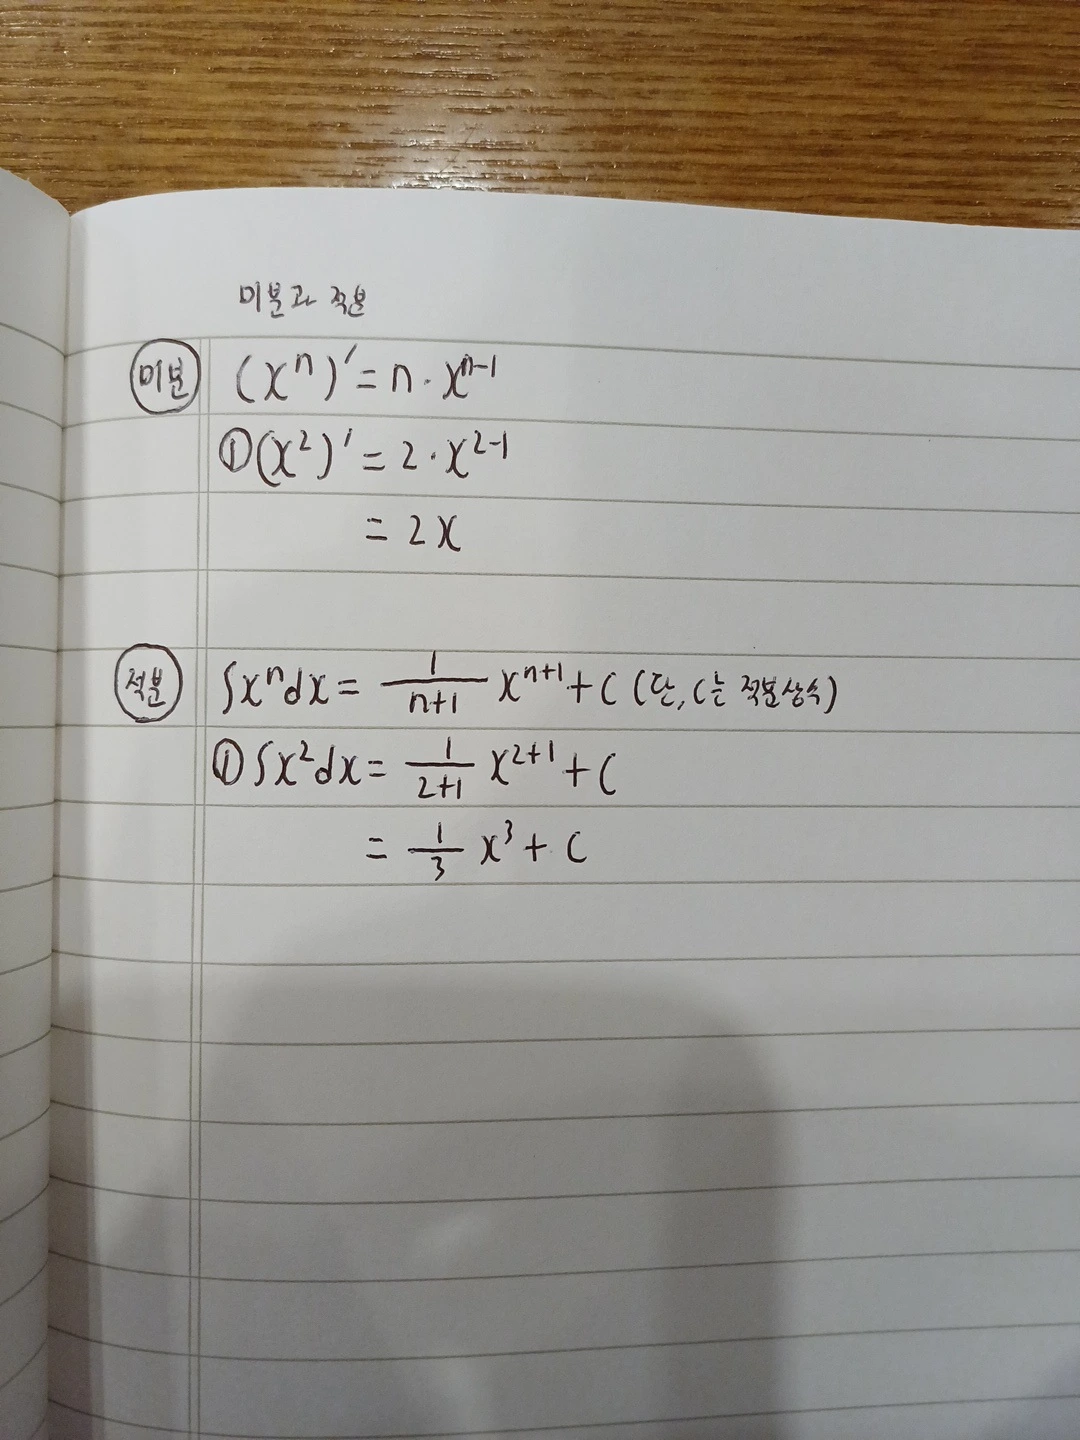 미분과 적분
미분 (xⁿ)′ = n · xⁿ⁻¹
① (x²)′ = 2 · x²⁻¹
= 2x
적분 ∫xⁿdx = 1/(n+1) xⁿ⁺¹ + C (단, C는 적분상수)
① ∫x²dx = 1/(2+1) x²⁺¹ + C
= 1/3 x³ + C